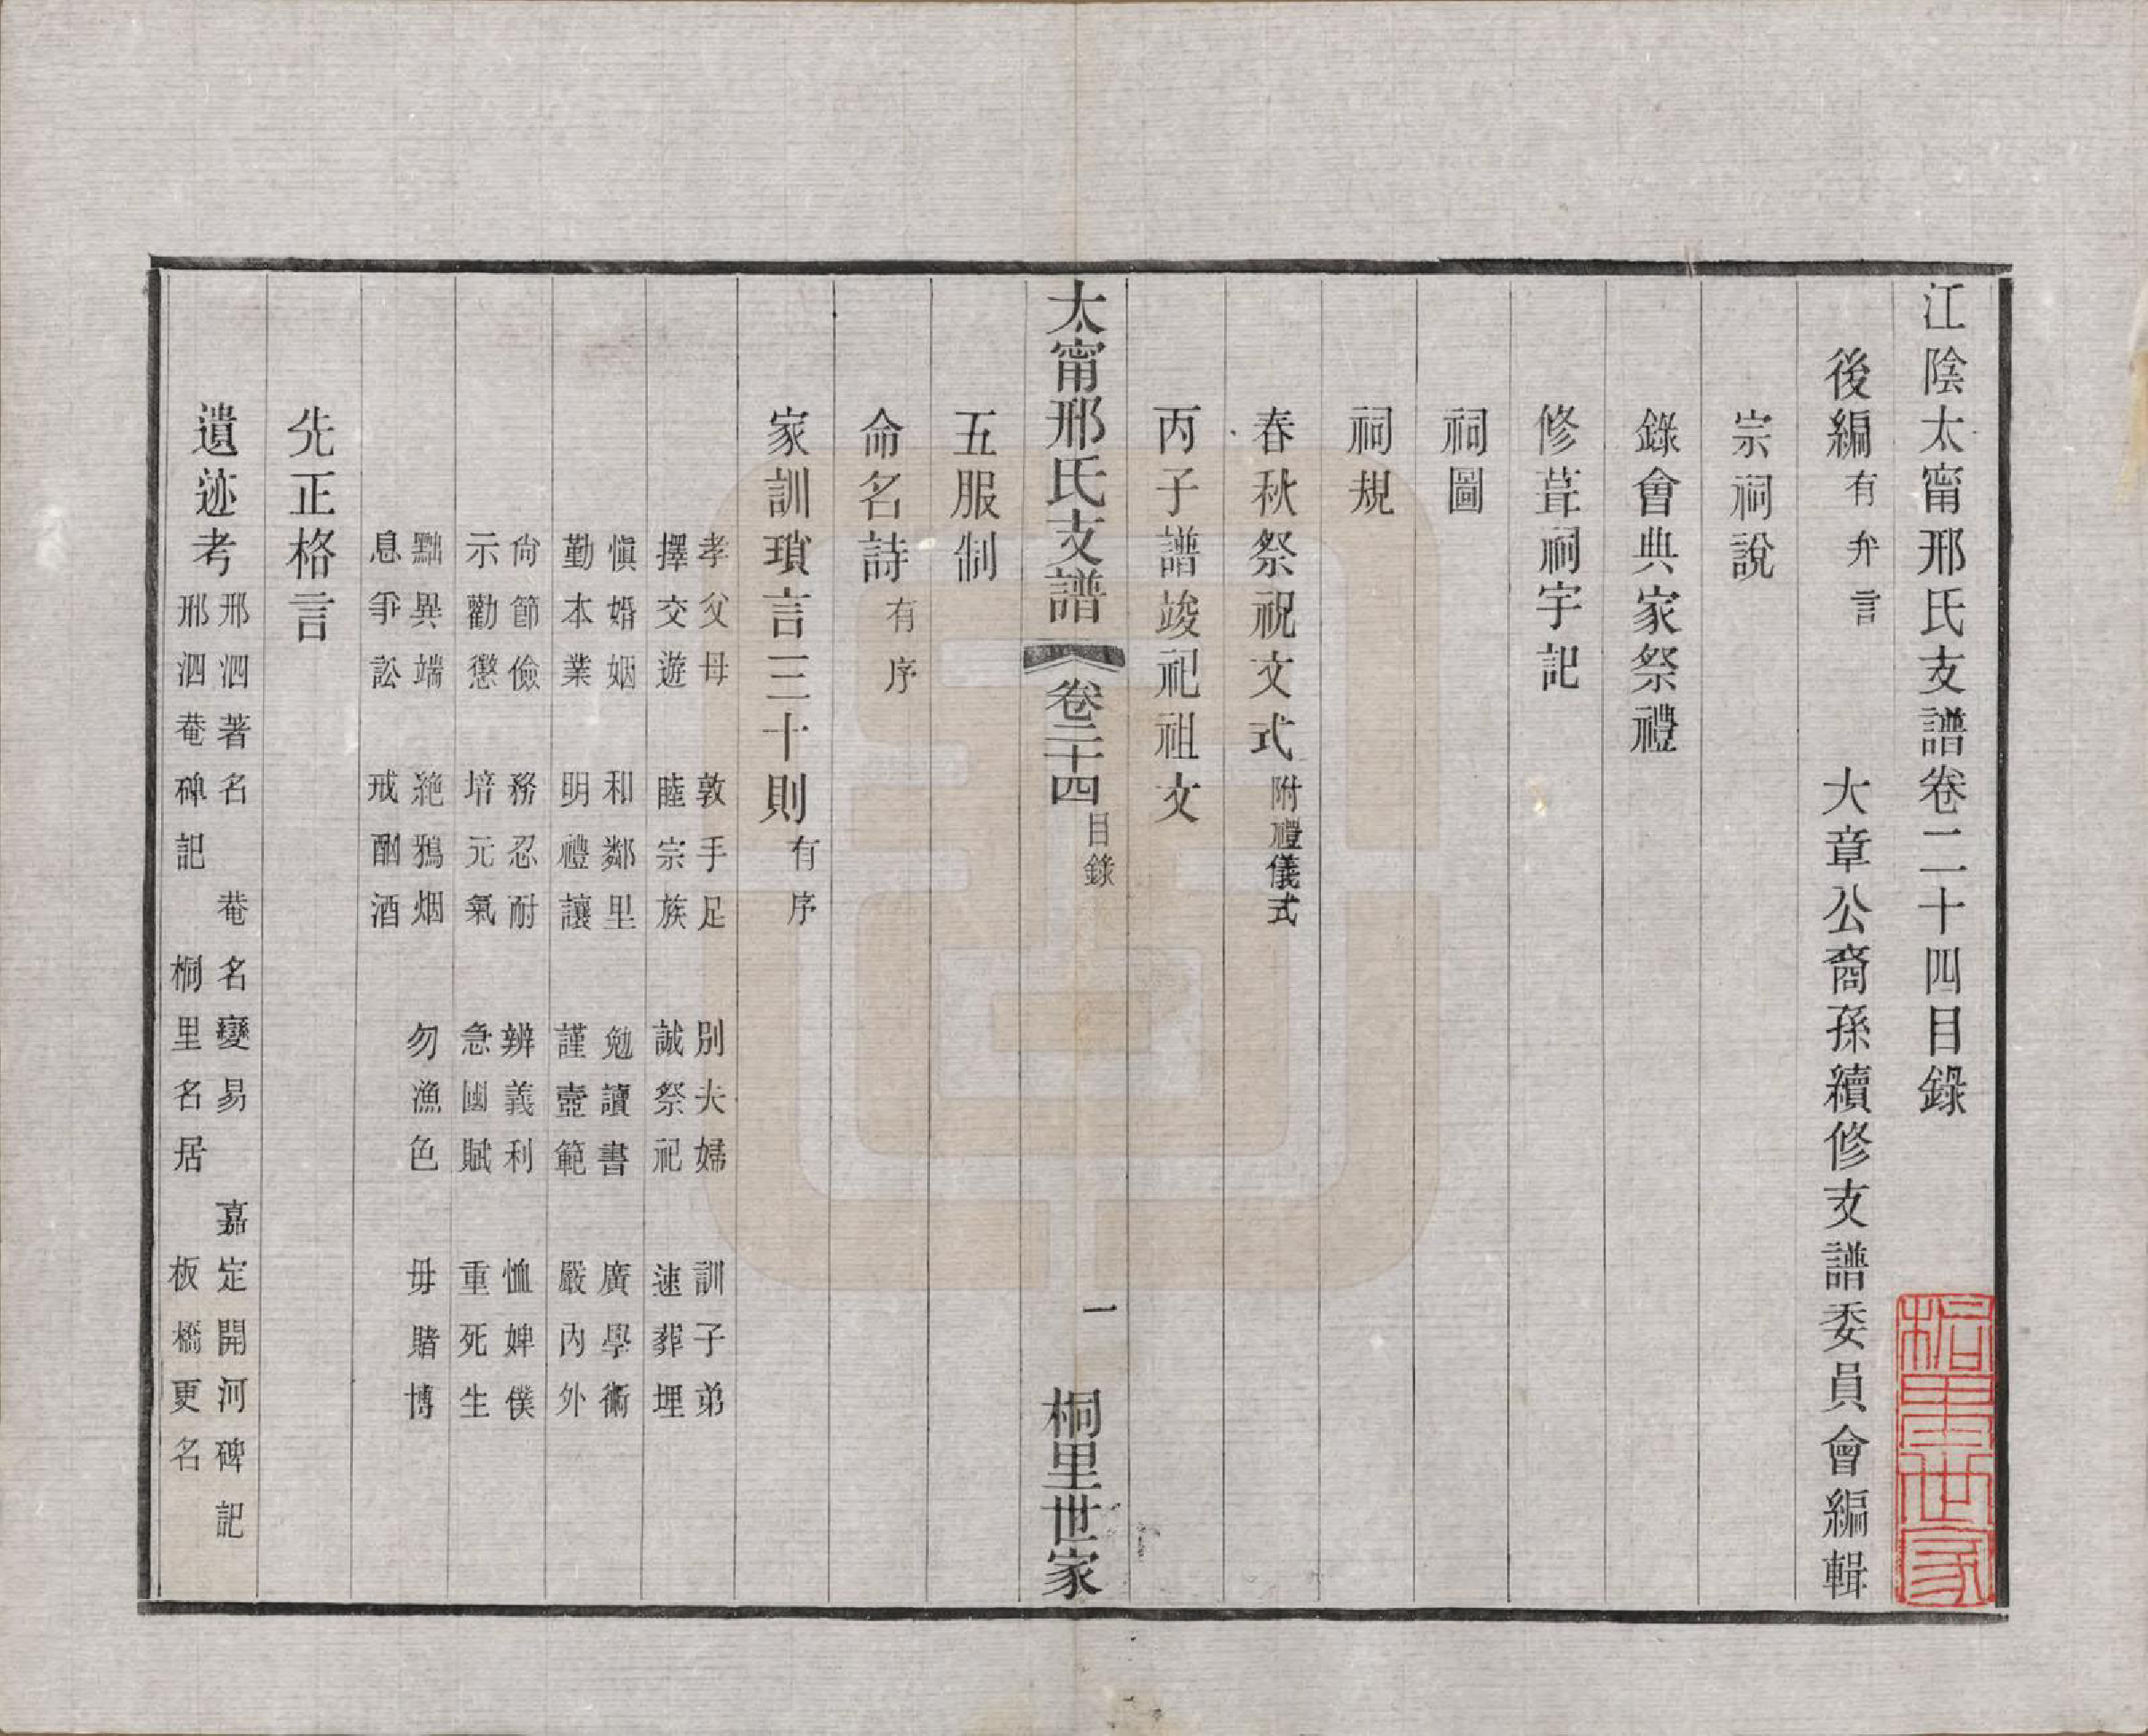 江陰太甯邢氏支譜卷二十四目錄
後編有弁言　大章公裔孫續修支譜委員會編輯
宗祠說
錄會典家祭禮
修葺祠宇記
祠圖
祠規
春秋祭祝文式附禮儀式
丙子譜竣祀祖文
太甯邢氏支譜　卷二十四　目錄　一　桐里世家
五服制
命名詩有序
家訓瑣言三十則有序
孝父母　敦手足　別夫婦　訓子弟
擇交遊　睦宗族　誠祭祀　速葬埋
愼婚姻　和鄰里　勉讀書　廣學術
勤本業　明禮讓　謹壼範　嚴內外
尙節儉　務忍耐　辨義利　恤婢僕
示勸懲　培元氣　急國賦　重死生
黜異端　絶鴉烟　勿漁色　毋賭博
息爭訟　戒酗酒
先正格言
遺迹考
邢泗著名　菴名變易　嘉定開河碑記
邢泗菴碑記　桐里名居　板橋更名
桐里世家